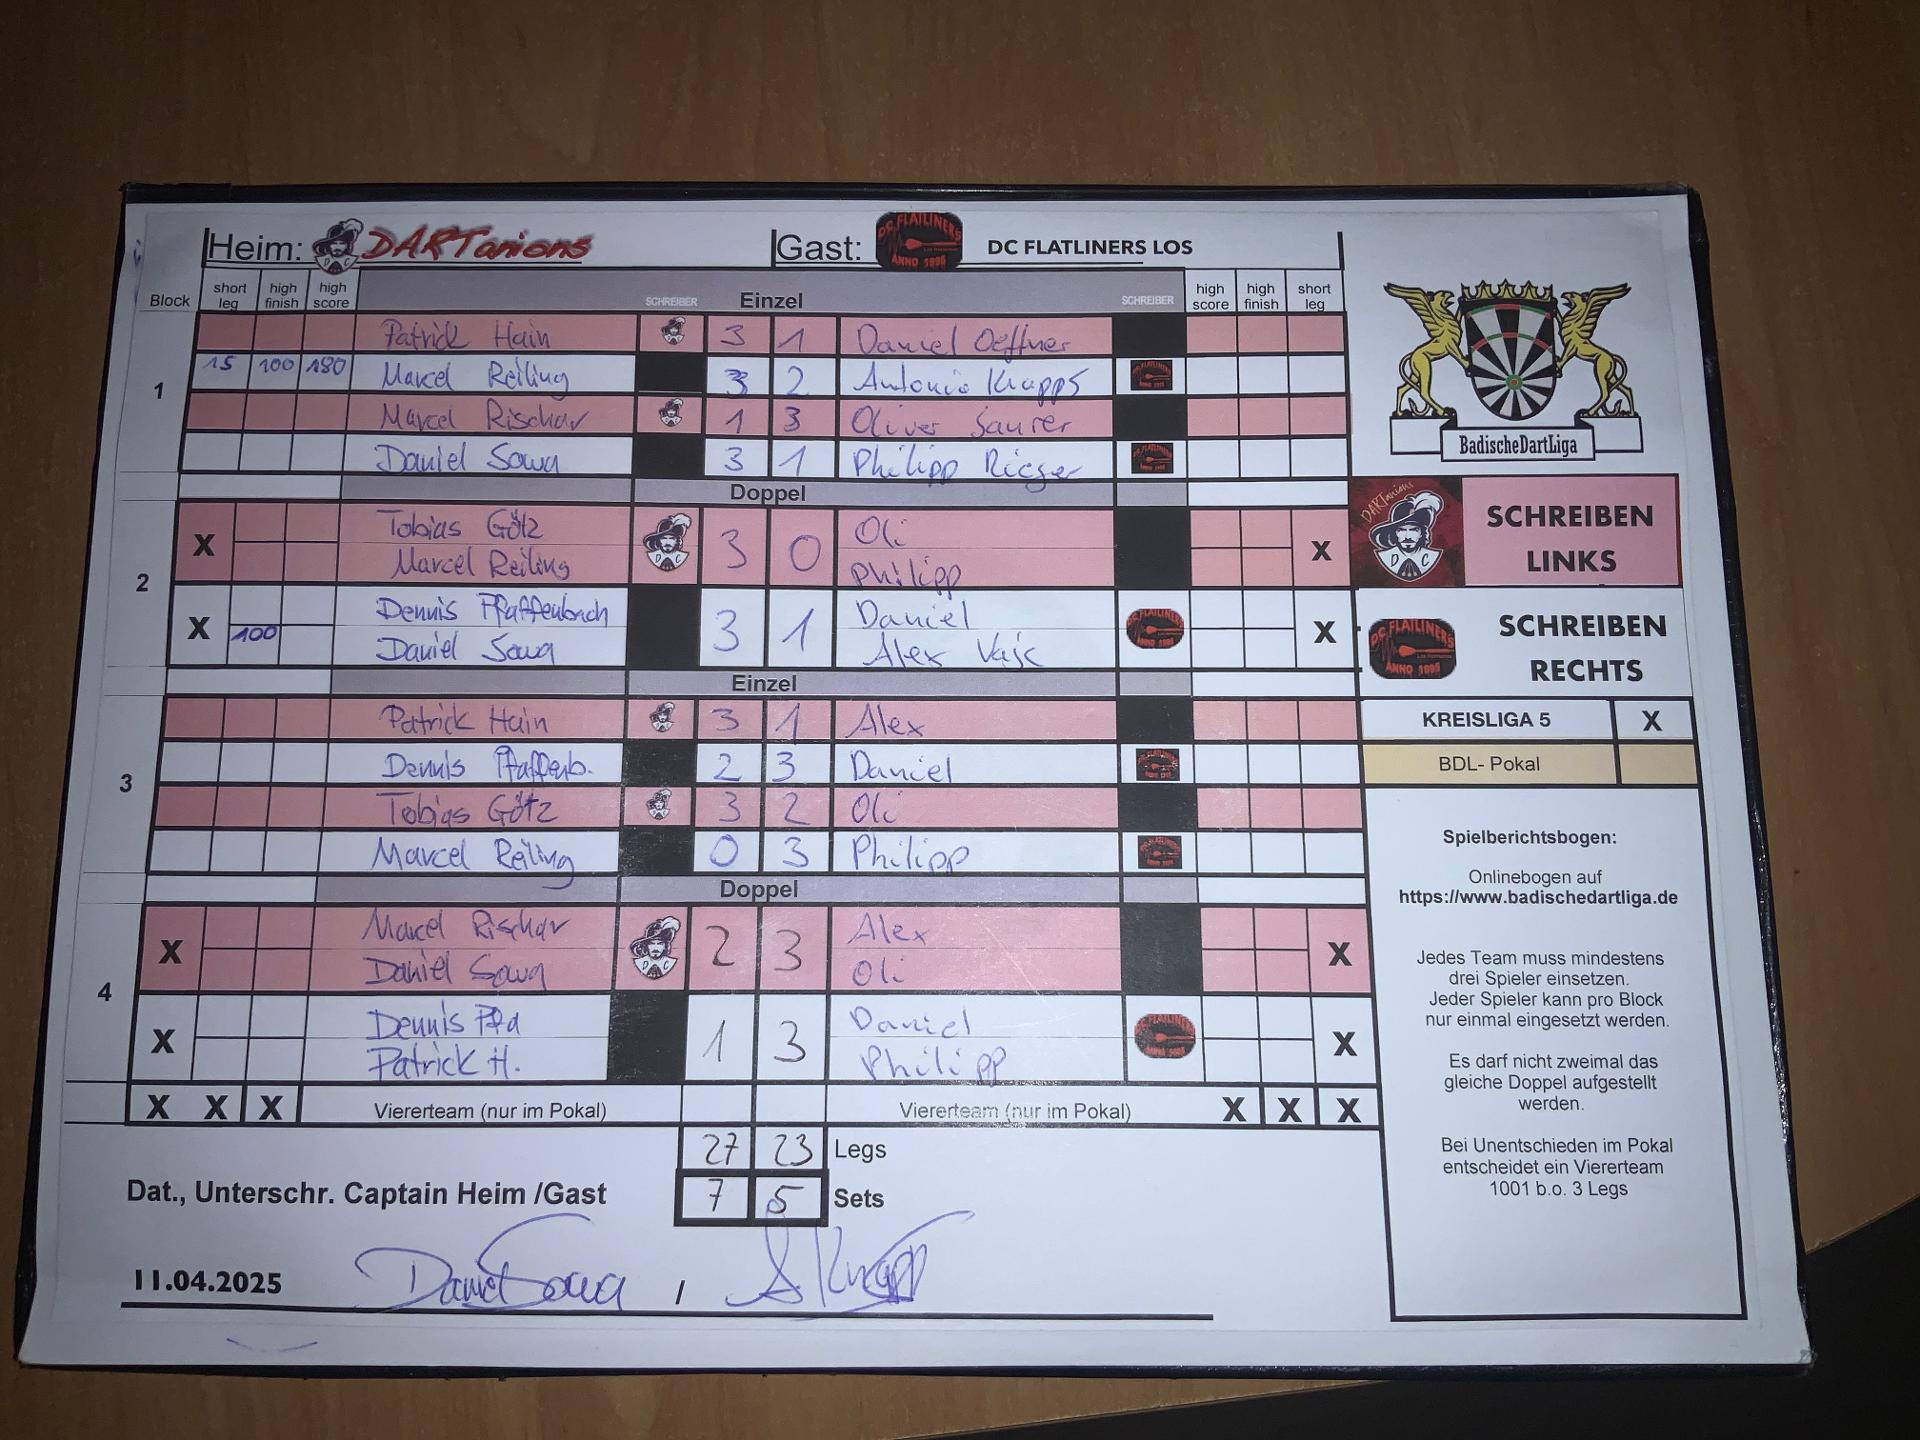 Heim: DARTanions Gast: DC FLATLINERS ANNO 1895 DC FLATLINERS LOS
Block short leg high finish high score SCHREIBER Einzel SCHREIBER high score high finish short leg
1
Patrick Hain 3 1 Daniel Oeffner
15 100 180 Marcel Reiling 3 2 Antonio Knapps
Marcel Rischar 1 3 Oliver Saurer
Daniel Sowa 3 1 Philipp Rieger
Doppel
2
X Tobias Götz 3 0 Oli X
Marcel Reiling Philipp
X 100 Dennis Pfaffenbach 3 1 Daniel X
Daniel Sowa Alex
Einzel
3
Patrick Hain 3 1 Alex
Dennis Pfaffenb. 2 3 Daniel
Tobias Götz 3 2 Oli
Marcel Reiling 0 3 Philipp
Doppel
4
X Marcel Rischar 2 3 Alex X
Daniel Sowa Oli
X Dennis Pfa 1 3 Daniel X
Patrick H. Philipp
X X X Viererteam (nur im Pokal) Viererteam (nur im Pokal) X X X
27 23 Legs
Dat., Unterschr. Captain Heim /Gast 7 5 Sets
11.04.2025 Daniel Sowa / A Knapp
BadischeDartLiga
DARTanions
D C
SCHREIBEN
LINKS
DC FLATLINERS
ANNO 1895
SCHREIBEN
RECHTS
KREISLIGA 5 X
BDL- Pokal
Spielberichtsbogen:
Onlinebogen auf
https://www.badischedartliga.de
Jedes Team muss mindestens
drei Spieler einsetzen.
Jeder Spieler kann pro Block
nur einmal eingesetzt werden.
Es darf nicht zweimal das
gleiche Doppel aufgestellt
werden.
Bei Unentschieden im Pokal
entscheidet ein Viererteam
1001 b.o. 3 Legs